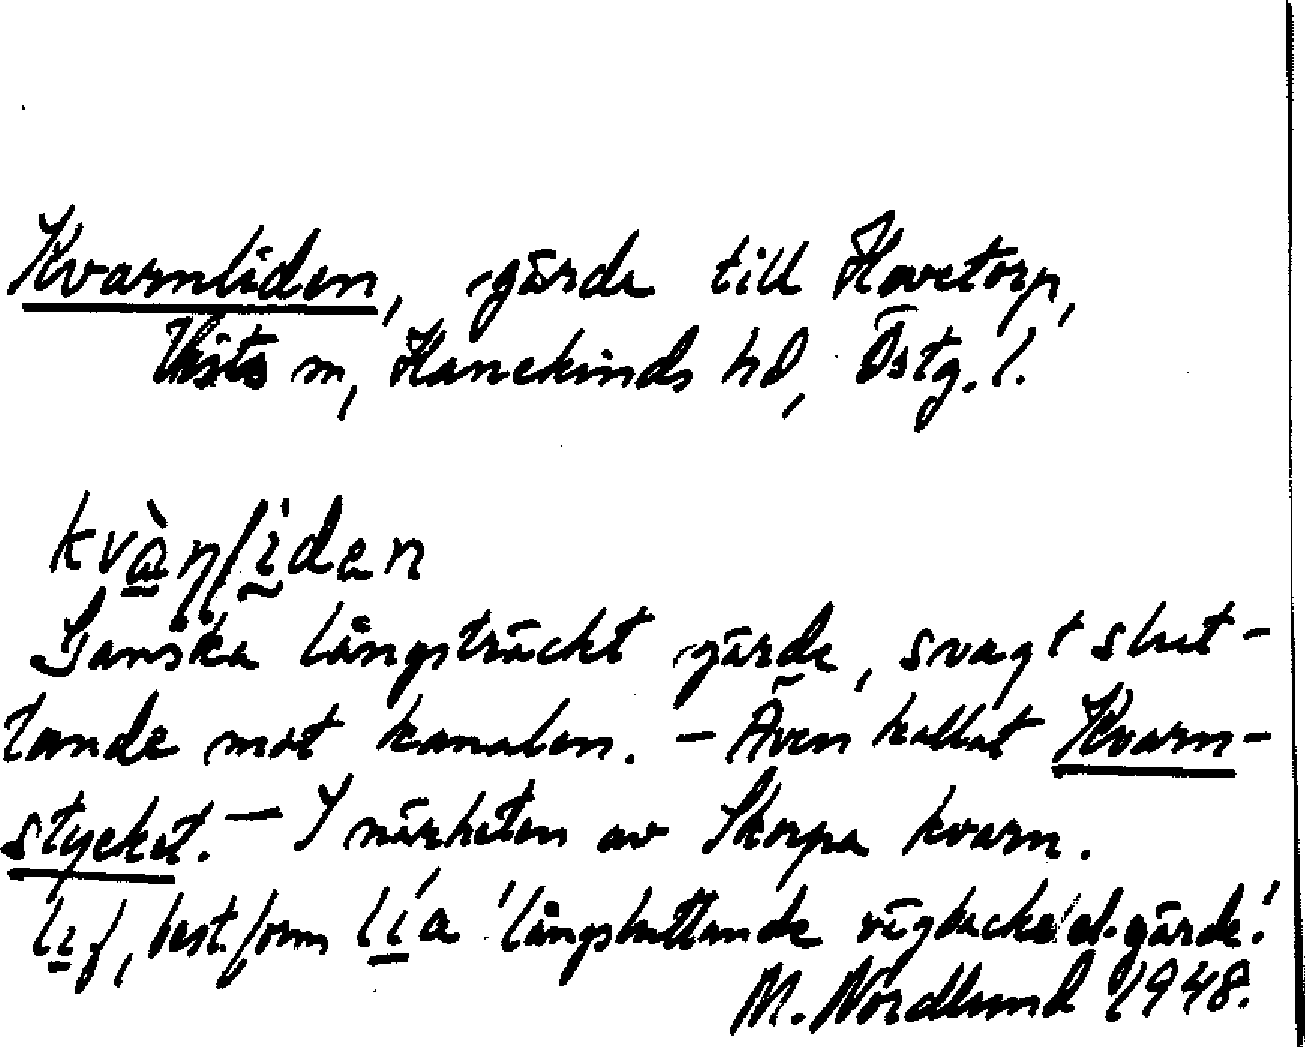 Kvarnliden, gärde till Hovetorp,
Vists sn, Hanekinds hd, Östg. l.
kvàn̩liden
Ganska långsträckt gärde, svagt slut-
tande mot kanalen. - Även kallat Kvarn-
stycket. - I närheten av Skorpa kvarn.
li f, best. form lía 'långsluttande vägbacke el. gärde'.
M. Nordlund 1948.